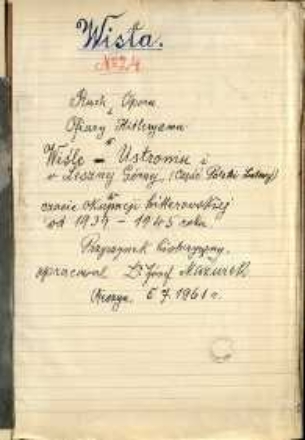 Wisła.
No 24
Ruch i Oporu
Ofiary Hitleryzmu
w
Wiśle - Ustroniu i
w Lesznej Górnej, (Część Polski Ludowej)
w
czasie okupacji hitlerowskiej
od 1939 - 1945 roku
Przyczynek historyczny.
opracował Józef Mazurek
Cieszyn, 5.7.1961 r.